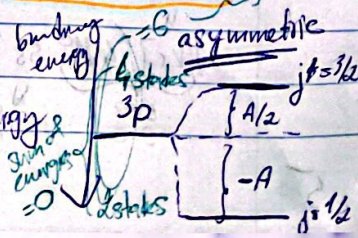 binding energy
=6
asymmetric
4 states
j=3/2
3p
A/2
sum of energies
=0
-A
2 states
j=1/2